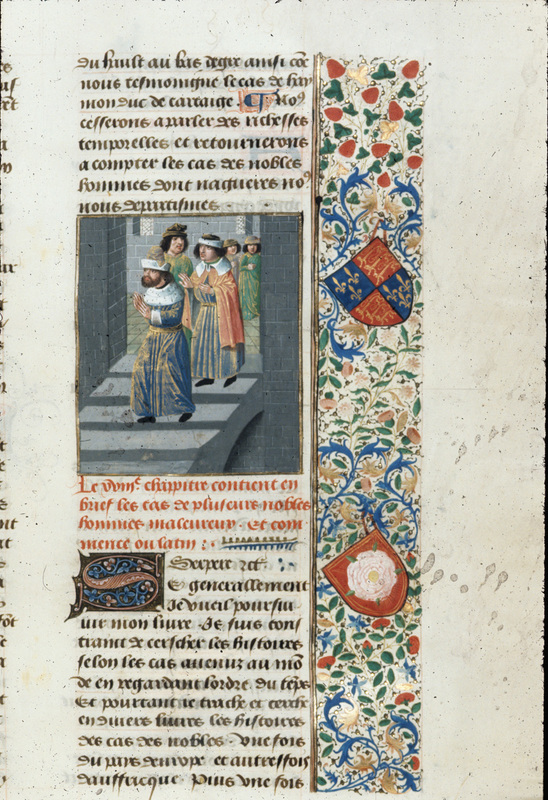 du hault au bas degre ainsi cõe
nous tesmoingne le cas de hay
mon duc de cartaige. Noꝰ
cesserons a parler des richesses
temporelles et retournerons
a compter les cas des nobles
hommes dont nagueres noꝰ
nous departismes
Le chappitre contient en
brief les cas de plusieurs nobles
hommes maleureux. Et com
mence ou latin :
Serper etc̃.
Se generallement
Je vueil poursui
uir mon liure. Je suis cons
traint de cerscher les histoires
selon les cas auenuz au mõ
de en regardant lordre du tẽps
Et pourtant ie trache et cerche
en diuers liures les histoires
des cas des nobles. Vne fois
du pays deurope et autresfois
dauffricque. Puis vne fois